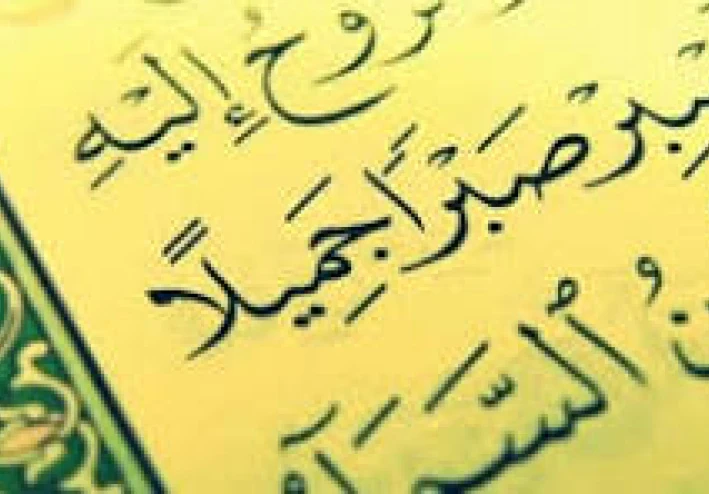 رُّوحُ إِلَيْهِ
صْبِرْ صَبْرًا جَمِيلًا
نُ ٱلسَّمَآ